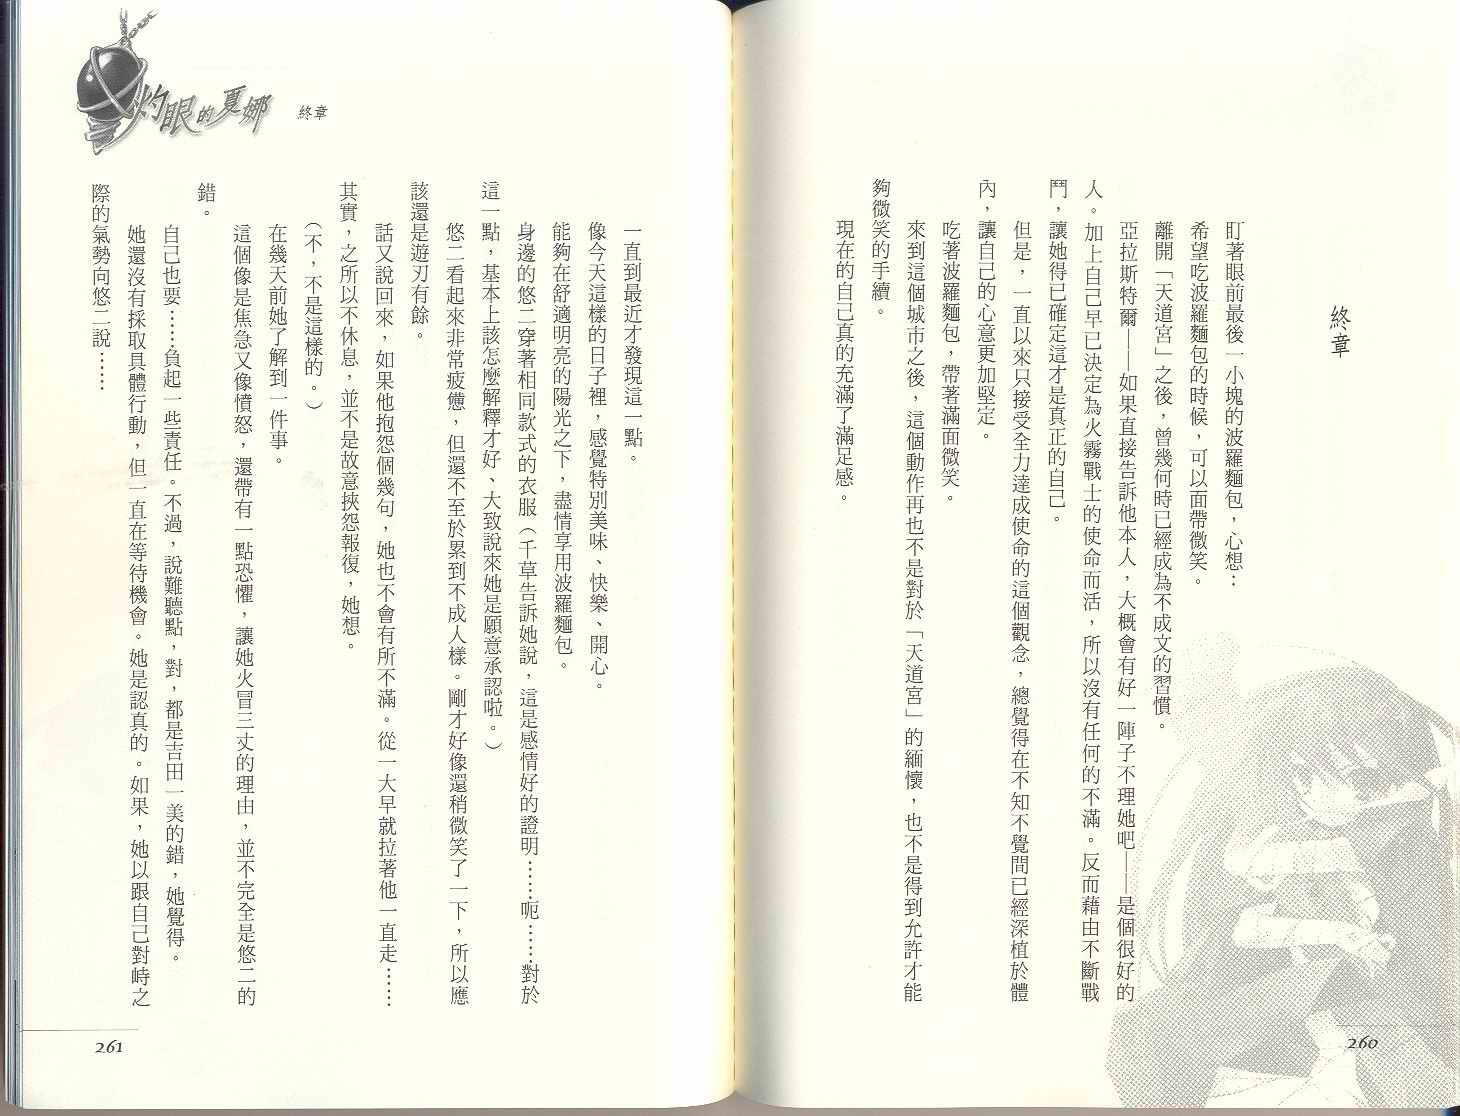 終章
盯著眼前最後一小塊的波羅麵包，心想：
希望吃波羅麵包的時候，可以面帶微笑。
離開「天道宮」之後，曾幾何時已經成為不成文的習慣。
亞拉斯特爾——如果直接告訴他本人，大概會有好一陣子不理她吧——是個很好的
人。加上自己早已決定為火霧戰士的使命而活，所以沒有任何的不滿。反而藉由不斷戰
鬥，讓她得已確定這才是真正的自己。
但是，一直以來只接受全力達成使命的這個觀念，總覺得在不知不覺間已經深植於體
內，讓自己的心意更加堅定。
吃著波羅麵包，帶著滿面微笑。
來到這個城市之後，這個動作再也不是對於「天道宮」的緬懷，也不是得到允許才能
夠微笑的手續。
現在的自己真的充滿了滿足感。
260
灼眼的夏娜
終章
一直到最近才發現這一點。
像今天這樣的日子裡，感覺特別美味、快樂、開心。
能夠在舒適明亮的陽光之下，盡情享用波羅麵包。
身邊的悠二穿著相同款式的衣服（千草告訴她說，這是感情好的證明……呃……對於
這一點，基本上該怎麼解釋才好、大致說來她是願意承認啦。）
悠二看起來非常疲憊，但還不至於累到不成人樣。剛才好像還稍微笑了一下，所以應
該還是遊刃有餘。
話又說回來，如果他抱怨個幾句，她也不會有所不滿。從一大早就拉著他一直走……
其實，之所以不休息，並不是故意挾怨報復，她想。
（不，不是這樣的。）
在幾天前她了解到一件事。
這個像是焦急又像憤怒，還帶有一點恐懼，讓她火冒三丈的理由，並不完全是悠二的
錯。
自己也要……負起一些責任。不過，說難聽點，對，都是吉田一美的錯，她覺得。
她還沒有採取具體行動，但一直在等待機會。她是認真的。如果，她以跟自己對峙之
際的氣勢向悠二說……
261